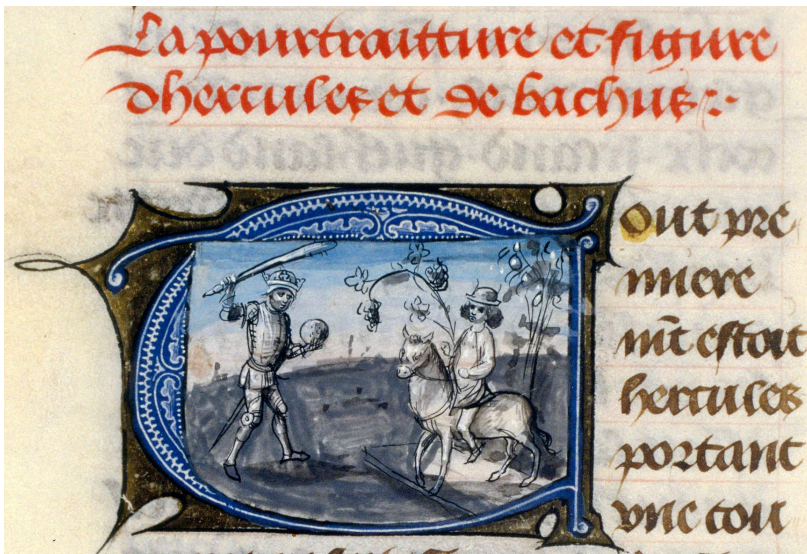 La pourtraitture et figure
dhercules et de bachus :-
Tout pre
miere
mĩt estoit
hercules
portant
vne cou